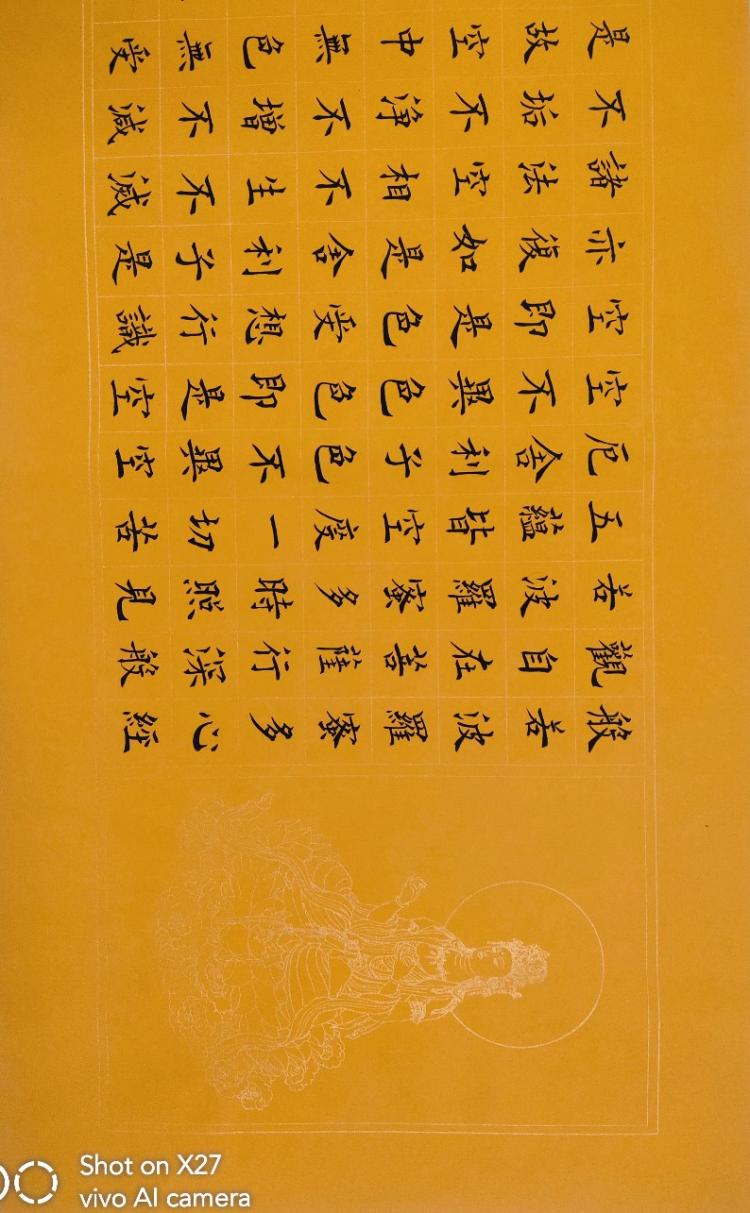 般若波羅蜜多心經
觀自在菩薩行深般
若波羅蜜多時照見
五蘊皆空度一切苦
厄舍利子色不異空
空不異色色即是空
空即是色受想行識
亦復如是舍利子是
諸法空相不生不滅
不垢不淨不增不減
是故空中無色無受
Shot on X27
vivo AI camera